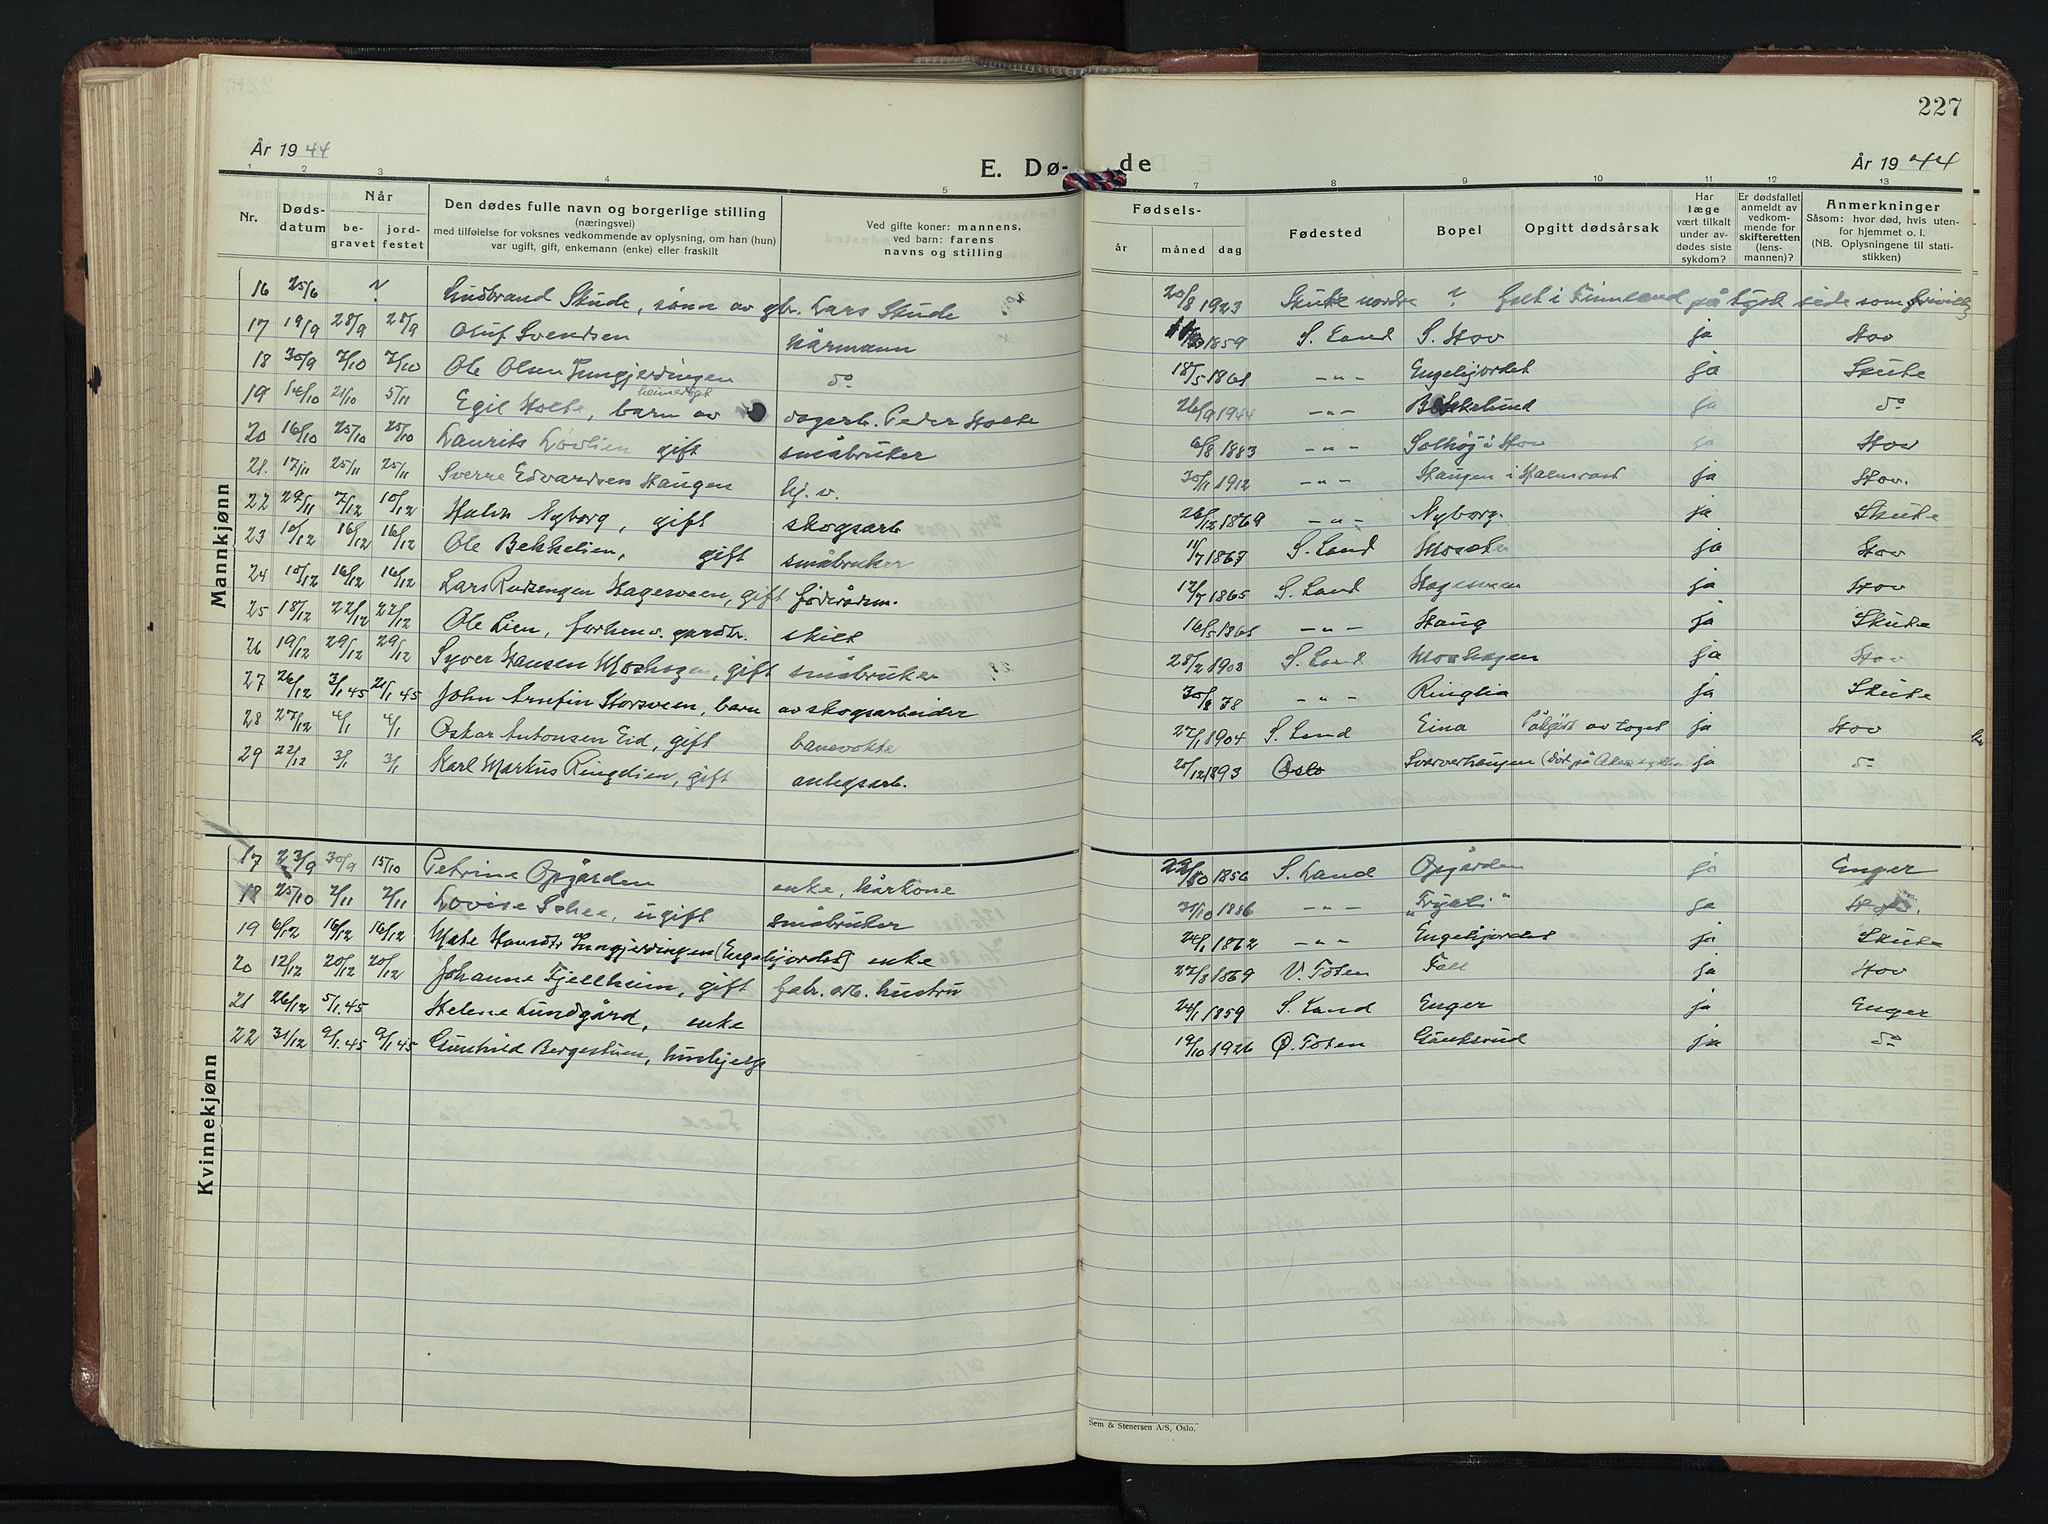 227
År 1944
E. Dø- de
År 1944
1 2 3 4 5 7 8 9 10 11 12 13
Nr.
Døds-
datum
Når
be-
gravet
jord-
festet
Den dødes fulle navn og borgerlige stilling
(næringsvei)
med tilføielse for voksnes vedkommende av oplysning, om han (hun)
var ugift, gift, enkemann (enke) eller fraskilt
Ved gifte koner: mannens,
ved barn: farens
navns og stilling
Fødsels-
år
måned
dag
Fødested
Bopel
Opgitt dødsårsak
Har
læge
vært tilkalt
under av-
dødes siste
sykdom?
Er dødsfallet
anmeldt av
vedkom-
mende for
skifteretten
(lens-
mannen)?
Anmerkninger
Såsom: hvor død, hvis uten-
for hjemmet o. l.
(NB. Oplysningene til stati-
stikken)
Mannkjønn
16 25/6 ? Gudbrand Skude, sønn av gbr. Lars Skude 20/8 1923 Skute nordre ? falt i Finnland på tysk side som frivillig
17 19/9 28/9 28/9 Oluf Svendsen kårmann 1859 S. Land S. Hov ja Hov
18 30/9 7/10 7/10 Ole Olsen Lungjerdingen do 18/5 1861 -"- Engelijordet ja Skute
19 14/10 21/10 5/11 Egil Holte, hjemmedøpt barn av dagarb. Peder Holte 26/9 1944 -"- Bekkelund ja do
20 16/10 25/10 25/10 Laurits Løvlien gift småbruker 6/8 1883 -"- Solhøj i Hov ja Hov
21. 17/11 25/11 25/11 Sverre Edvardsen Haugen hj. v. 30/1 1912 -"- Haugen i Halmrast ja Hov.
22 29/11 7/12 10/12 Halvor Nyborg, gift skogsarb 26/12 1869 -"- Nyborg. ja Skute
23 10/12 16/12 16/12 Ole Bekkelien, gift småbruker 11/7 1867 S. Land ja Hov
24 10/12 16/12 16/12 Lars Rudsengen Hagesveen, gift føderådsm. 17/7 1865 S. Land Hagesveen ja Hov
25 18/12 22/12 22/12 Ole Lien, forhenv. gardbr. skilt 16/5 1865 -"- Haug ja Skute
26 19/12 29/12 29/12 Syver Hansen Moshagen, gift småbruker 28/2 1903 S. Land Moshagen ja Hov
27 26/12 3/1 45 21/1 45 John Arnfin Storsveen, barn av skogsarbeider -"- Ringlia ja Skute
28 27/12 4/1 4/1 Oskar Antonsen Eid, gift banevokte 27/1 1904 S. Land Eina Påkjørt av toget ja Hov
29 22/12 3/1 3/1 Karl Markus Ringelien, gift anlegsarb. 20/12 1893 Oslo Sværverhaugen (Død på ja do
Kvinnekjønn
17 23/9 30/9 15/10 Petrine Opgården enke, kårkone 1856 S. Land Opgården ja Enger
18 25/10 2/11 2/11 Lovise Schee, ugift småbruker 31/10 1886 -"- "Frykli" ja Hov.
19 6/12 16/12 16/12 Mate Hansdtr Lungjerdingen (Engelijordet) enke 24/1 1862 -"- Engelijordet ja Skute
20 12/12 20/12 20/12 Johanne Fjellheim, gift fabr. arb. hustru 27/3 1869 V. Toten Fall ja Hov
21 26/12 5/1. 45 Helene Lundgård, enke 24/1 1859 S. Land Enger ja Enger
22 31/12 9/1. 45 9/1 45 Gunhild Bergestuen, hushjelp 19/10 1926 Ø. Toten Gauksrud ja do
Sem & Stenersen A/S, Oslo.